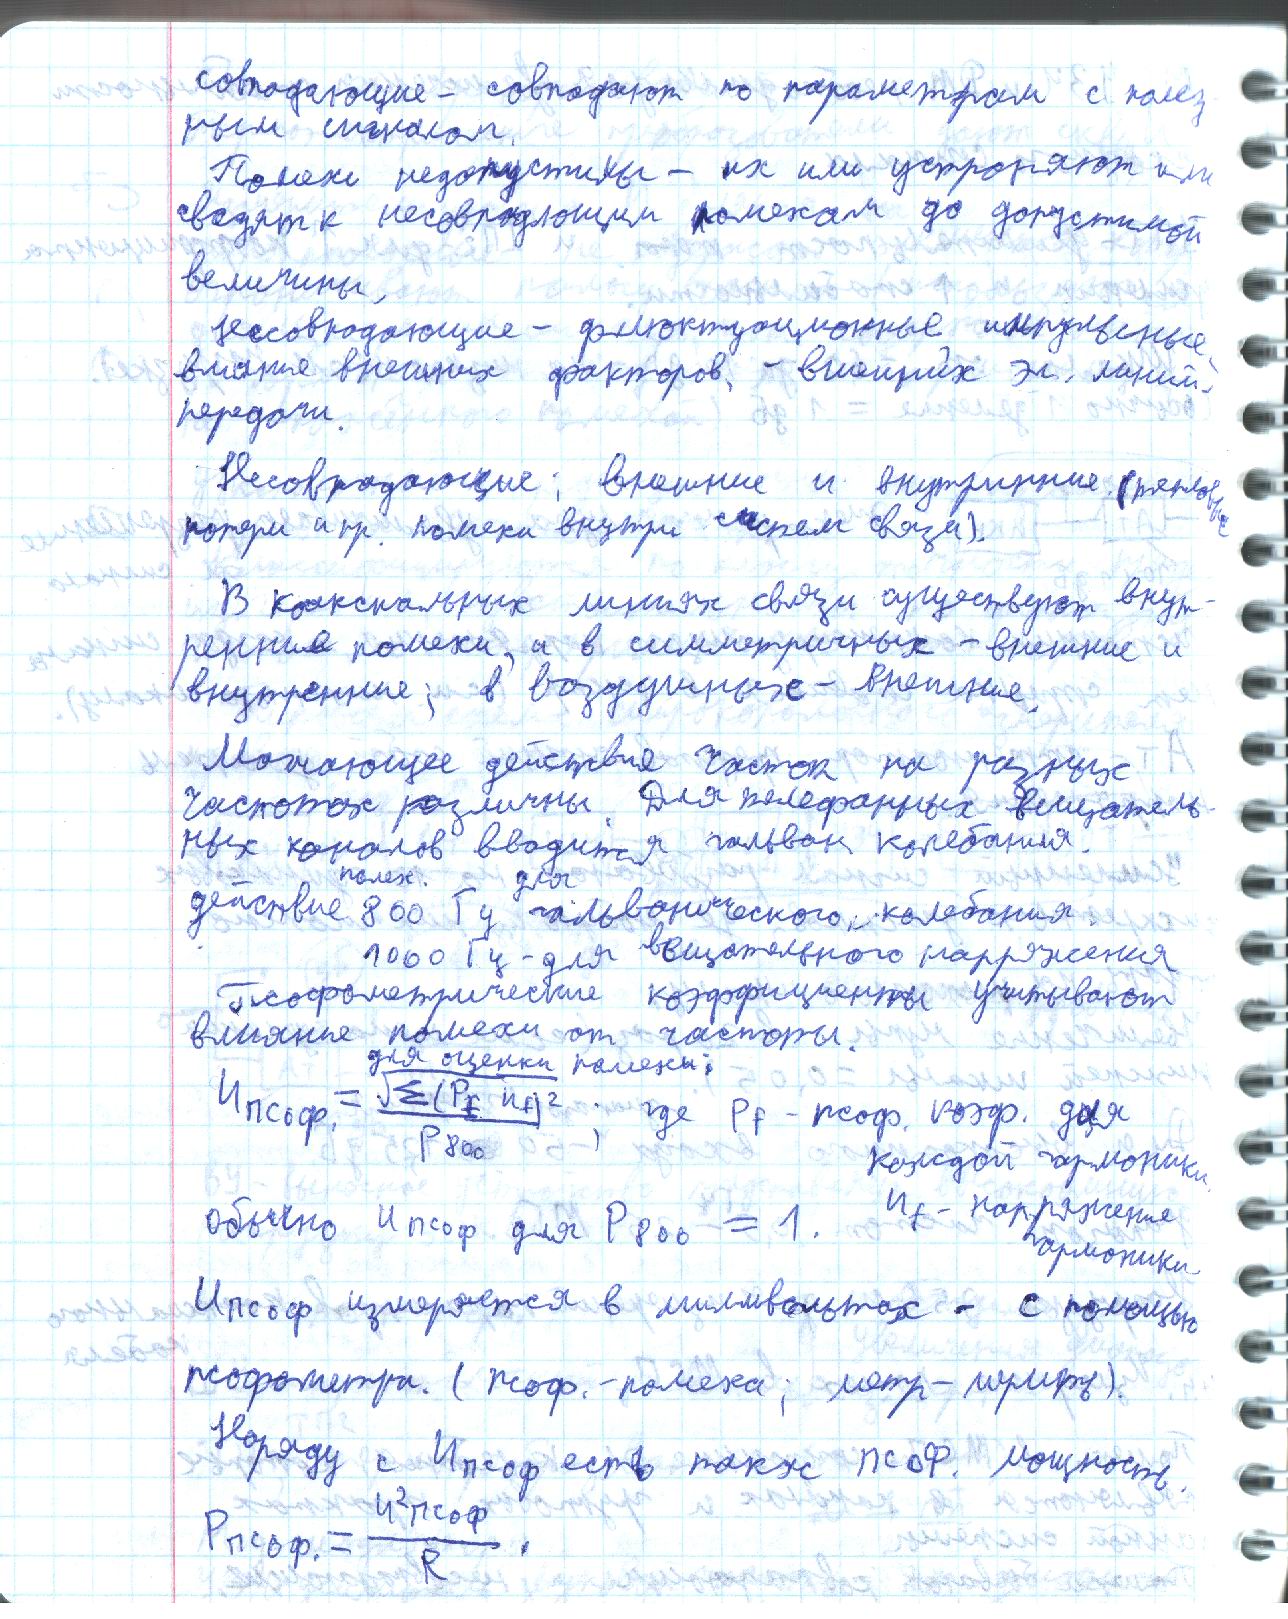 совпадающие – совпадают по параметрам с полез-
ным сигналом.
Помехи недопустимы – их или устраняют или
сводят к несовпадающим помехам до допустимой
величины.
Несовпадающие – флюктуационные импульсные,
влияние внешних факторов, – внешних эл. линий
передачи.
Несовпадающие; внешние и внутринние (тепловые
потери и пр. помехи внутри систем связи).
В коаксиальных линиях связи существуют внут-
ренние помехи, а в симметричных – внешние и
внутренние; в воздушных – внешние.
Мешающее действия частот на разных
частотах различны. Для телефонных вещатель-
ных каналов вводится гальван. колебания.
помех. для
действие 800 Гц гальванического колебания
1000 Гц – для вещательного напряжения
Псофометрические коэффициенты учитывают
влияние помехи от частоты.
для оценки помехи:
Uпсоф. = √Σ(Pf Uf)² / P800 ; где Pf – псоф. коэф. для
каждой гармоники.
обычно Uпсоф для P800 = 1. Uf – напряжение
гармоники
Uпсоф измеряется в миливольтах – с помощью
псофометра. (псоф. – помеха; метр – мерить).
Наряду с Uпсоф есть также псоф. мощность.
Pпсоф. = U²псоф / R .